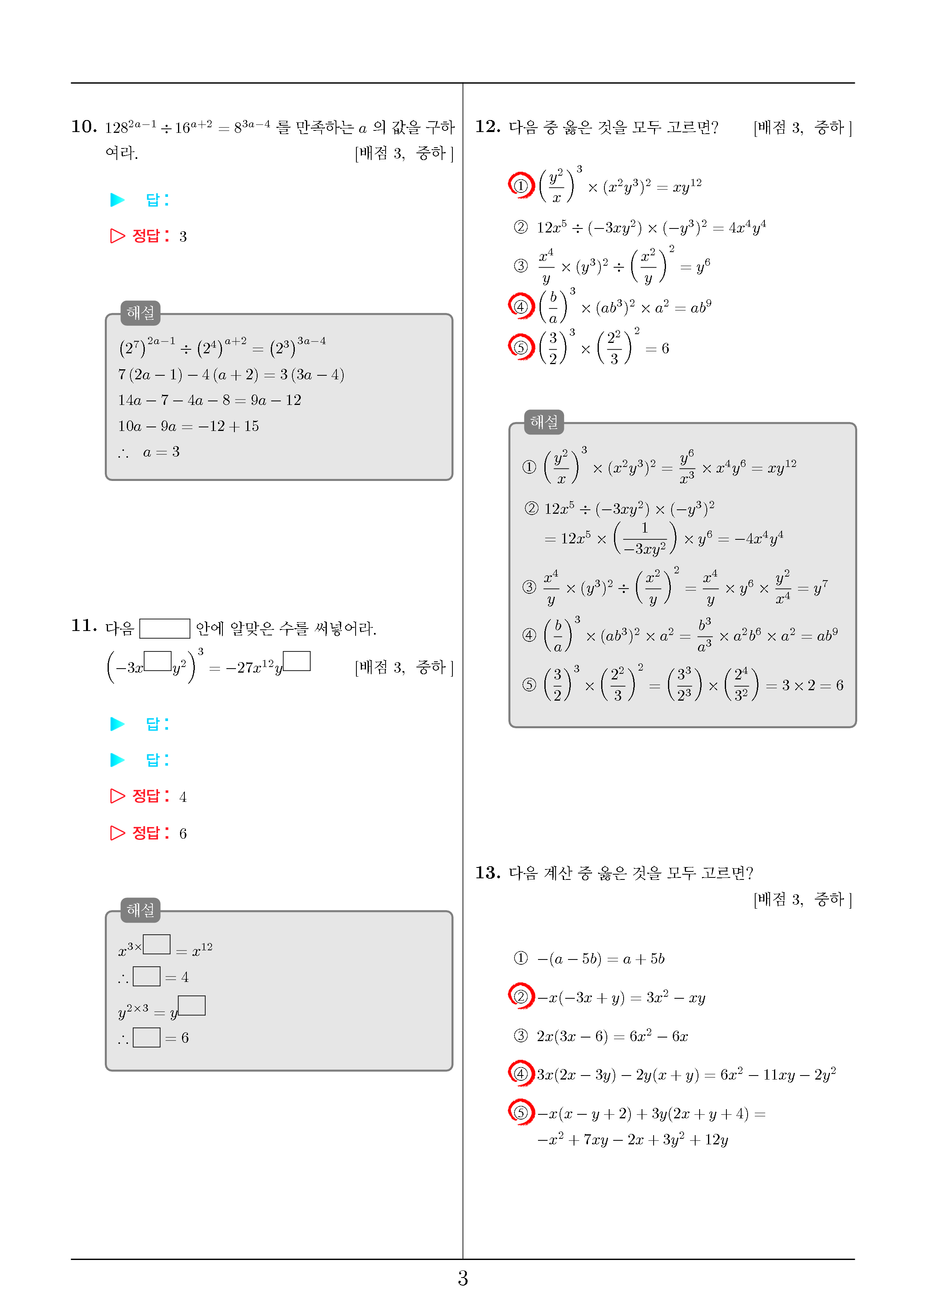 10. 128^{2a−1} ÷ 16^{a+2} = 8^{3a−4} 를 만족하는 a 의 값을 구하
여라. [배점 3, 중하 ]
▶ 답 :
▷ 정답 : 3
해설
(2^7)^{2a−1} ÷ (2^4)^{a+2} = (2^3)^{3a−4}
7 (2a − 1) − 4 (a + 2) = 3 (3a − 4)
14a − 7 − 4a − 8 = 9a − 12
10a − 9a = −12 + 15
∴ a = 3
11. 다음 □ 안에 알맞은 수를 써넣어라.
(−3x^□ y^2)^3 = −27x^{12}y^□ [배점 3, 중하 ]
▶ 답 :
▶ 답 :
▷ 정답 : 4
▷ 정답 : 6
해설
x^{3×□} = x^{12}
∴ □ = 4
y^{2×3} = y^□
∴ □ = 6
12. 다음 중 옳은 것을 모두 고르면? [배점 3, 중하 ]
① (y^2/x)^3 × (x^2y^3)^2 = xy^{12}
② 12x^5 ÷ (−3xy^2) × (−y^3)^2 = 4x^4y^4
③ x^4/y × (y^3)^2 ÷ (x^2/y)^2 = y^6
④ (b/a)^3 × (ab^3)^2 × a^2 = ab^9
⑤ (3/2)^3 × (2^2/3)^2 = 6
해설
① (y^2/x)^3 × (x^2y^3)^2 = y^6/x^3 × x^4y^6 = xy^{12}
② 12x^5 ÷ (−3xy^2) × (−y^3)^2
= 12x^5 × (1/−3xy^2) × y^6 = −4x^4y^4
③ x^4/y × (y^3)^2 ÷ (x^2/y)^2 = x^4/y × y^6 × y^2/x^4 = y^7
④ (b/a)^3 × (ab^3)^2 × a^2 = b^3/a^3 × a^2b^6 × a^2 = ab^9
⑤ (3/2)^3 × (2^2/3)^2 = (3^3/2^3) × (2^4/3^2) = 3 × 2 = 6
13. 다음 계산 중 옳은 것을 모두 고르면?
[배점 3, 중하 ]
① −(a − 5b) = a + 5b
② −x(−3x + y) = 3x^2 − xy
③ 2x(3x − 6) = 6x^2 − 6x
④ 3x(2x − 3y) − 2y(x + y) = 6x^2 − 11xy − 2y^2
⑤ −x(x − y + 2) + 3y(2x + y + 4) =
−x^2 + 7xy − 2x + 3y^2 + 12y
3